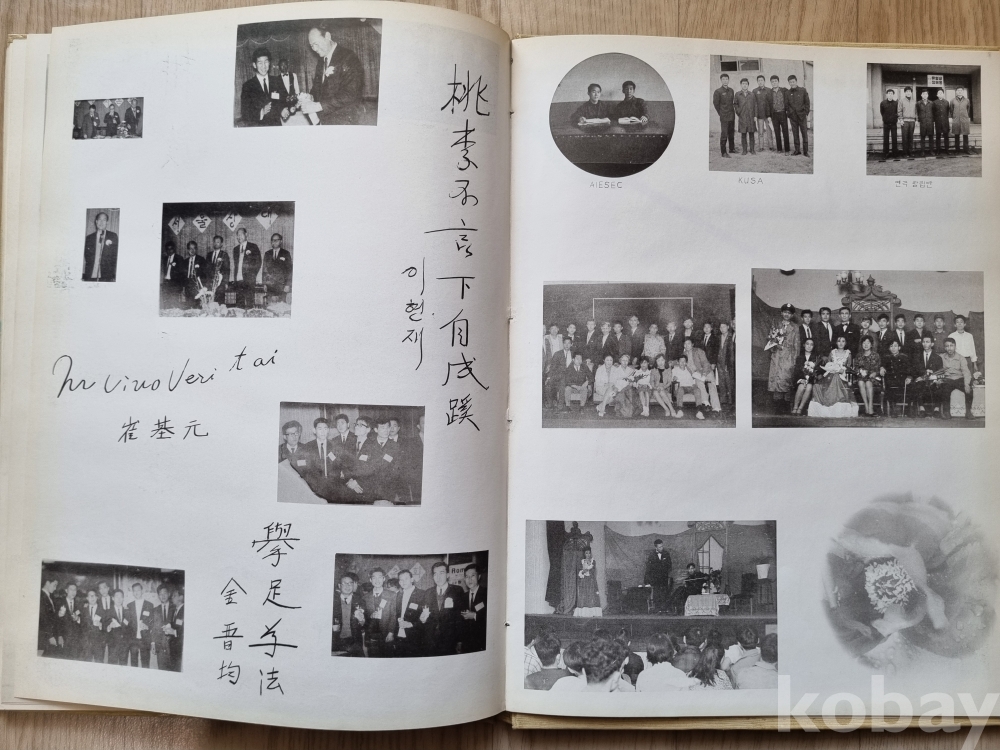 桃李不言下自成蹊
이현재
In Vino Veri tai
崔基元
擧足
法
金晋均
AIESEC
KUSA
연극
kobay